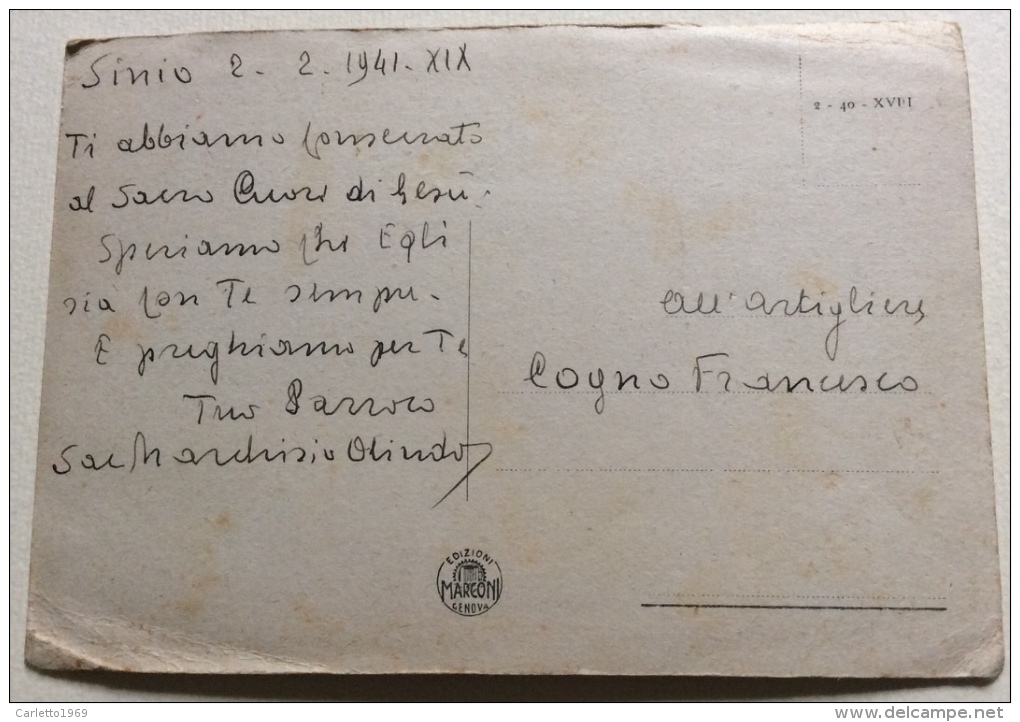 Sinio 2 - 2 - 1941 - XIX
Ti abbiamo consecrato
al Sacro Cuore di Gesù.
Speriamo che Egli
sia con Te sempre.
E preghiamo per Te
Tuo Parroco
Sac Marchisio Olindo
2 - 40 - XVIII
All'artigliere
Cogno Francesco
EDIZIONI
MARCONI
GENOVA
Carletto1969
www.delcampe.net